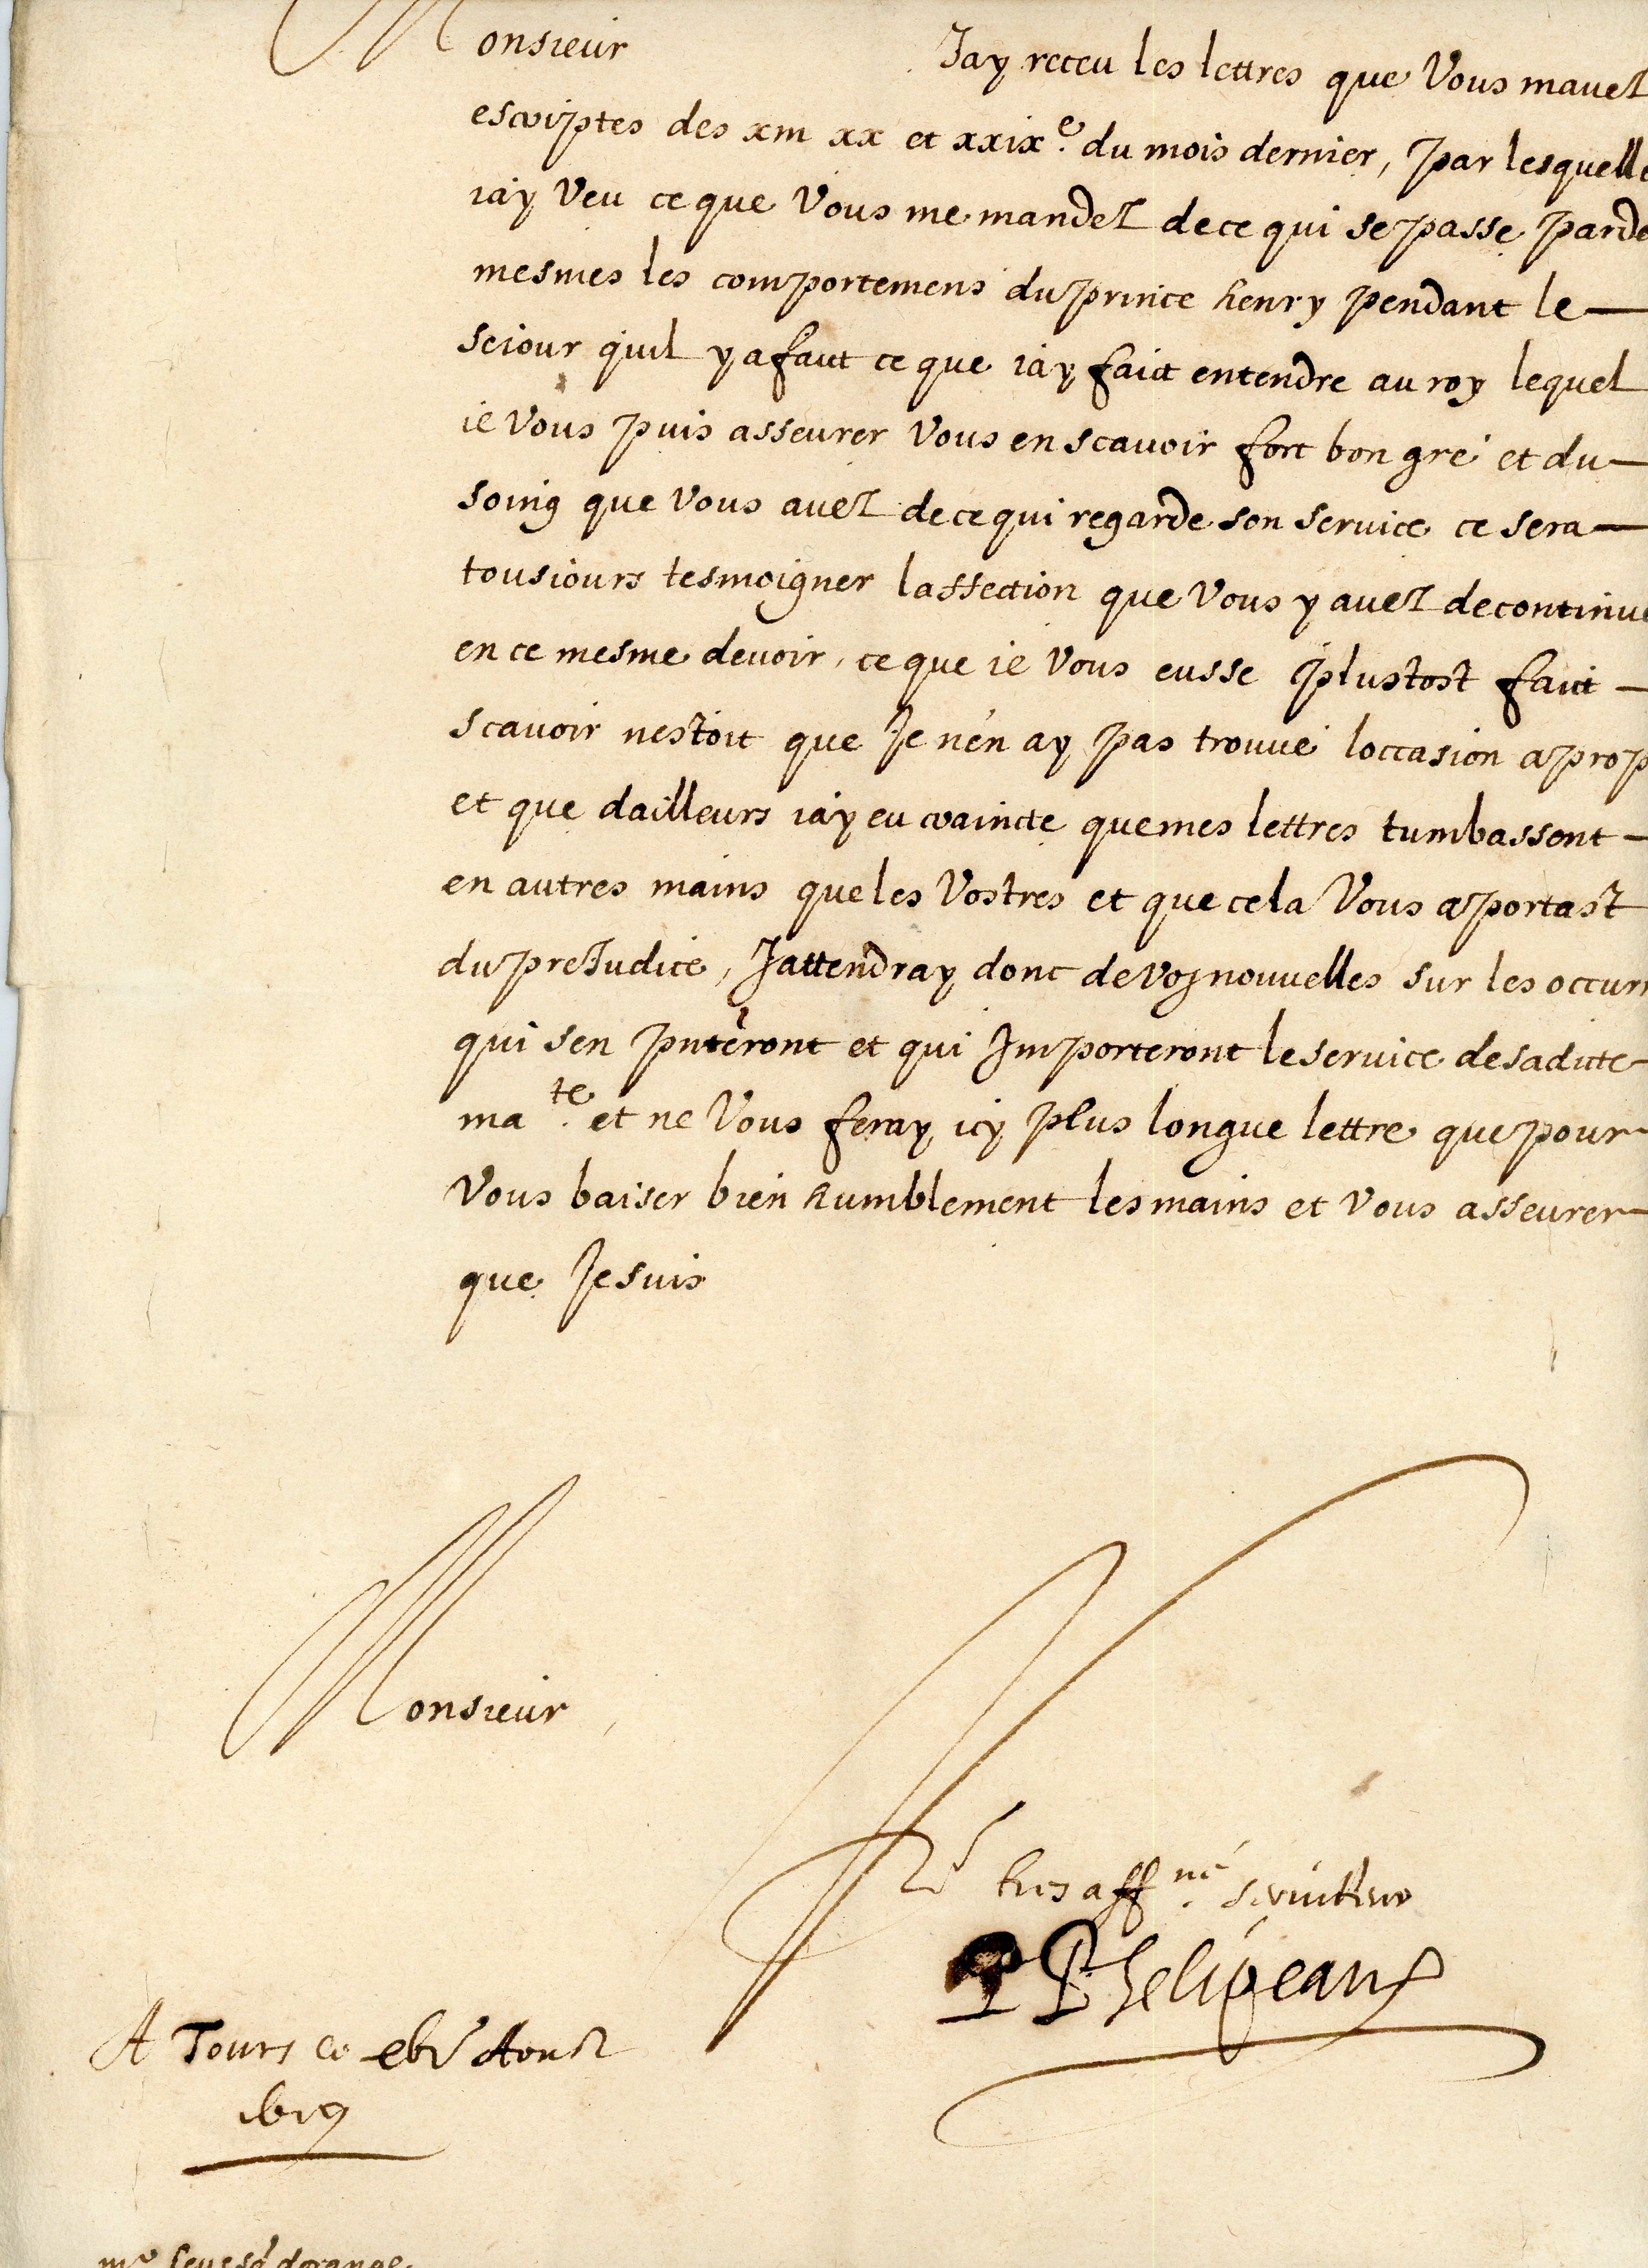 Monsieur Jay receu les lettres que Vous mauez
escriptes des xiii xx et xxix.e du mois dernier, par lesquelle
iay Veu ce que Vous me mandez de ce qui se passe parde
mesmes les comportemens du prince henry pendant le
seiour quil y a faict ce que iay faict entendre au roy lequel
ie Vous puis asseurer Vous en scauoir fort bon gré et du
soing que Vous auez de ce qui regarde son seruice ce sera
tousiours tesmoigner laffection que Vous y auez de continue
en ce mesme deuoir, ce que ie Vous eusse plustost faict
scauoir nestoit que Je nén ay pas trouué loccasion aprop
et que dailleurs iay eu craincte que mes lettres tumbassent
en autres mains que les Vostres et que cela Vous aportast
du preiudice, Jattendray donc de voz nouuelles sur les occurr
qui sen pnteront et qui Importeront le seruice de sadicte
ma.te et ne Vous feray icy plus longue lettre que pour
Vous baiser bien humblement les mains et Vous asseurer
que Je suis
Monsieur
tres aff.né seruiteur
P Phelipeaux
A Tours ce Aoust
mr leuesq dorange